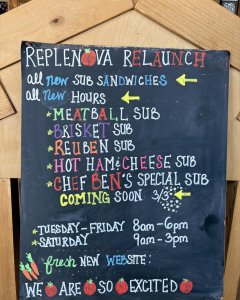 REPLENOVA RELAUNCH
all new SUB SANDWICHES
all new HOURS
MEATBALL SUB
BRISKET SUB
REUBEN SUB
HOT HAM & CHEESE SUB
CHEF BEN'S SPECIAL SUB
COMING SOON 3/3
TUESDAY-FRIDAY 8am-6pm
SATURDAY 9am-3pm
fresh NEW WEBSITE:
WE ARE SO EXCITED